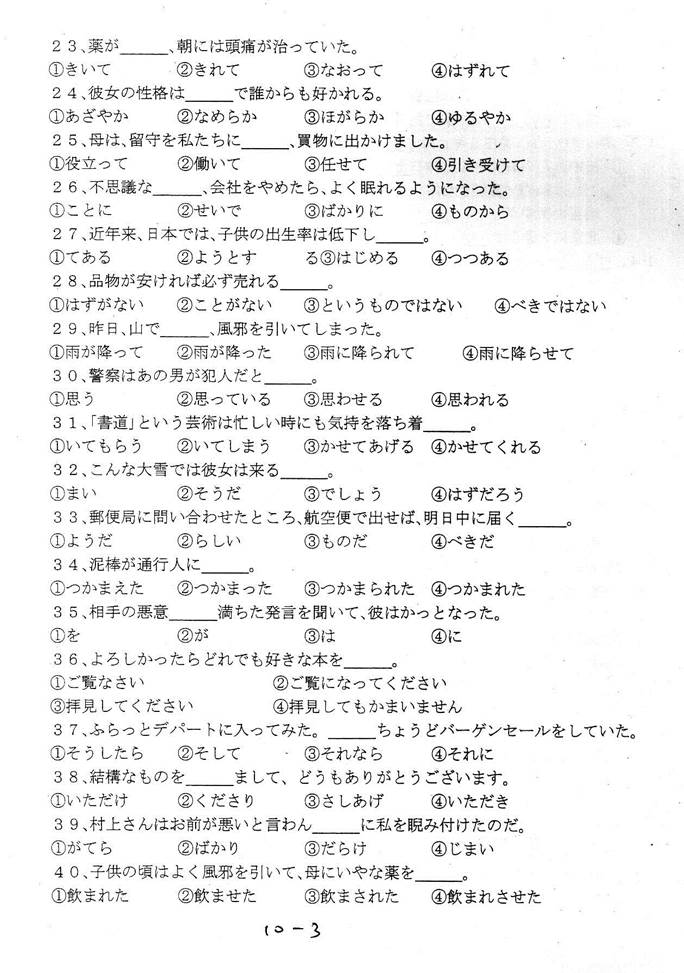 ２３、薬が______、朝には頭痛が治っていた。
①きいて ②きれて ③なおって ④はずれて
２４、彼女の性格は______で誰からも好かれる。
①あざやか ②なめらか ③ほがらか ④ゆるやか
２５、母は、留守を私たちに______、買物に出かけました。
①役立って ②働いて ③任せて ④引き受けて
２６、不思議な______、会社をやめたら、よく眠れるようになった。
①ことに ②せいで ③ばかりに ④ものから
２７、近年来、日本では、子供の出生率は低下し______。
①てある ②ようとす る③はじめる ④つつある
２８、品物が安ければ必ず売れる______。
①はずがない ②ことがない ③というものではない ④べきではない
２９、昨日、山で______、風邪を引いてしまった。
①雨が降って ②雨が降った ③雨に降られて ④雨に降らせて
３０、警察はあの男が犯人だと______。
①思う ②思っている ③思わせる ④思われる
３１、「書道」という芸術は忙しい時にも気持を落ち着______。
①いてもらう ②いてしまう ③かせてあげる ④かせてくれる
３２、こんな大雪では彼女は来る______。
①まい ②そうだ ③でしょう ④はずだろう
３３、郵便局に問い合わせたところ、航空便で出せば、明日中に届く______。
①ようだ ②らしい ③ものだ ④べきだ
３４、泥棒が通行人に______。
①つかまえた ②つかまった ③つかまられた ④つかまれた
３５、相手の悪意______満ちた発言を聞いて、彼はかっとなった。
①を ②が ③は ④に
３６、よろしかったらどれでも好きな本を______。
①ご覧なさい ②ご覧になってください
③拝見してください ④拝見してもかまいません
３７、ふらっとデパートに入ってみた。______ちょうどバーゲンセールをしていた。
①そうしたら ②そして ③それなら ④それに
３８、結構なものを______まして、どうもありがとうございます。
①いただけ ②くださり ③さしあげ ④いただき
３９、村上さんはお前が悪いと言わん______に私を睨み付けたのだ。
①がてら ②ばかり ③だらけ ④じまい
４０、子供の頃はよく風邪を引いて、母にいやな薬を______。
①飲まれた ②飲ませた ③飲まされた ④飲まれさせた
10-3